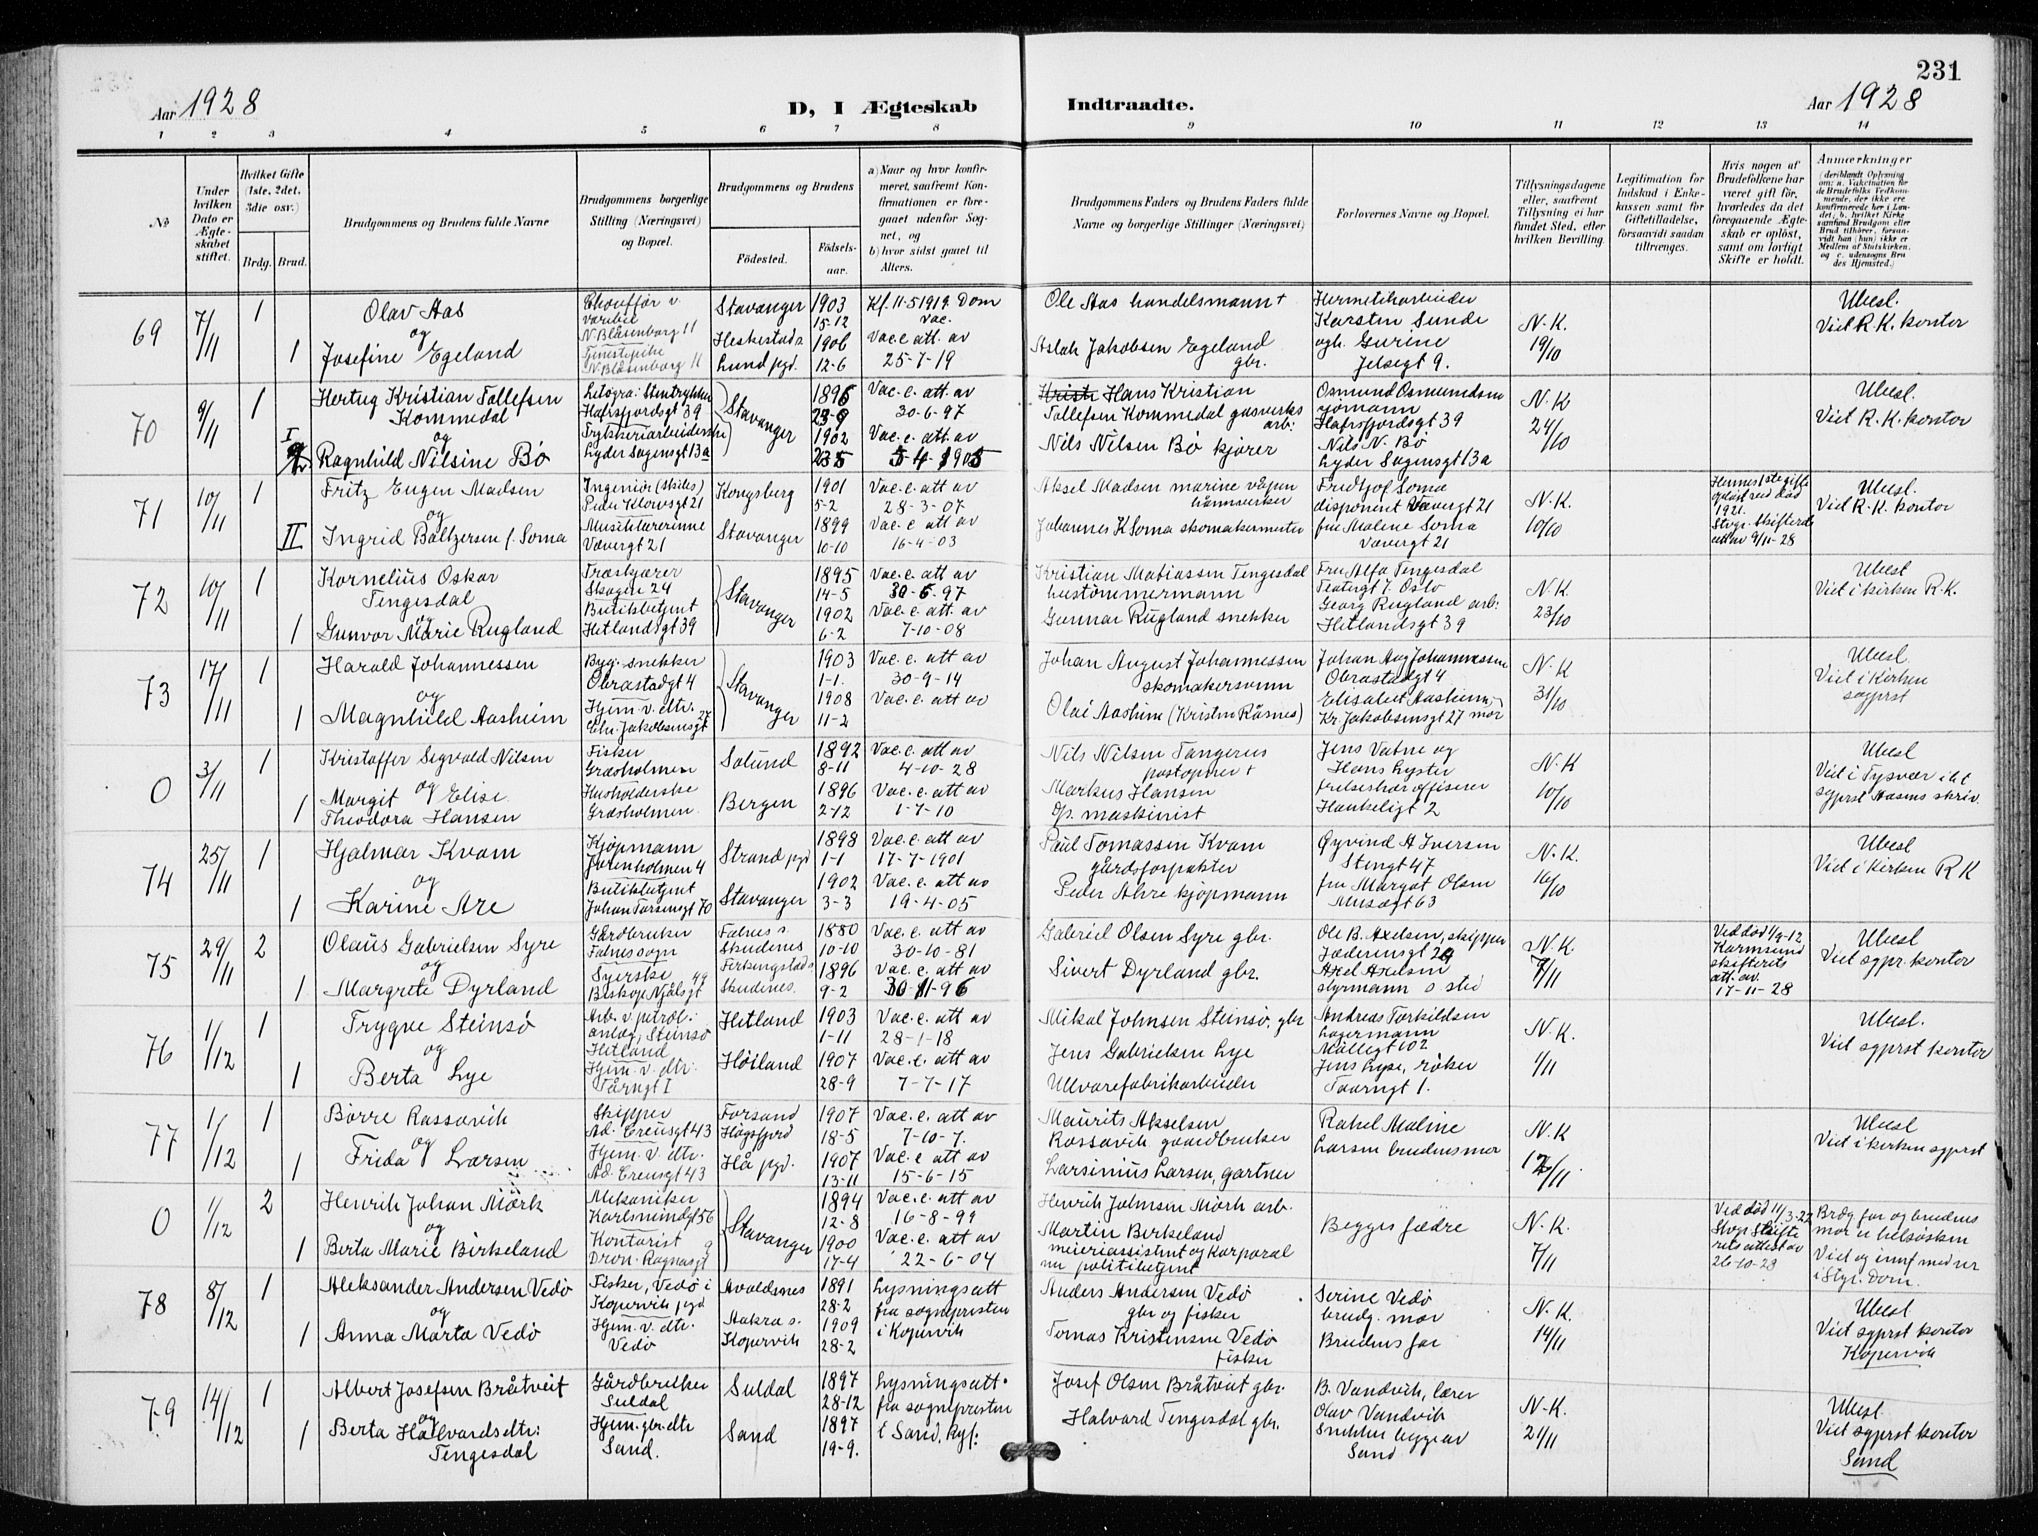 231
Aar 1928
D, I Ægteskab Indtraadte.
Aar 1928
1 2 3 4 5 6 7 8 9 10 11 12 13 14
№
Under hvilken Dato er Ægteskabet stiftet.
Hvilket Gifte (1ste, 2det, 3die osv.)
Brdg. Brud.
Brudgommens og Brudens fulde Navne
Brudgommens borgerlige Stilling (Næringsvei) og Bopæl.
Brudgommens og Brudens
Födested. Födselsaar.
a) Naar og hvor konfirmeret, saafremt Konfirmationen er foregaaet udenfor Sognet, og
b) hvor sidst gaaet til Alters.
Brudgommens Faders og Brudens Faders fulde Navne og borgerlige Stillinger (Næringsvei)
Forlovernes Navne og Bopæl.
Tillysningsdagene eller, saafremt Tillysning ei har fundet Sted, efter hvilken Bevilling.
Legitimation for Indskud i Enkekassen samt for Giftetilladelse, forsaavidt saadan tiltrænges.
Hvis nogen af Brudefolkene har været gift för, hvorledes da det foregaaende Ægteskab er oplöst, samt om lovligt Skifte er holdt.
Anmærkninger
69 7/11 1
Olav Aas
og
1 Josefine Egeland
Chauffør v. varebil
N. Blåsenborg 11
N. Blåsenborg 11
Stavanger 1903 15-12
Heskestad s. Lund pgd. 1906 12-6
Kf. 11-5 1919. Dom
Vac.
Vac. e. att. av
25-7-19
Ole Aas handelsmann +
Aslak Jakobsen Egeland
gbr.
Hermetikarbeider
Karsten Sunde
ogh. Gurine
Jelsegt 9.
N.K.
19/10
Ubesl.
Viet R.K. kontor
70 9/11 1
Hertug Kristian Tollefsen
Kommedal
og
Ragnhild Nilsine Bö
Litogra: Stentrykker
Hafrsfjordsgt 39
Trykkeriarbeiderske
Lyder Sagensgt 13a
Stavanger
1896
1902
Vac. e. att av
30-6-97
Vac. e. att av
5-4-1905
Hans Kristian
Tollefsen Kommedal gasverks
arb:
Nils Nilsen Bö kjører
Osmund Osmundsen
sjømann
Hafrsfjordsgt 39
Nils N. Bö
Lyder Sagensgt 13a
N.K
24/10
Ubesl.
Viet R.K. kontor
71 10/11 1
Fritz Eugen Madsen
og
II Ingrid Baltzersen f. Soma
Ingeniør (skilles)
Peder Klowsgt 21
Musiklærerinne
Vævergt 21
Kongsberg 1901 5-2
Stavanger 1899 10-10
Vac. e. att av
28-3-07
Vac. e att av
16-4-03
Aksel Madsen marine våpen
håndverker
Johannes K Soma skomakermester
Fredtjof Soma
disponent Vævergt 21
fru Malene Soma
Vævergt 21
N.K.
10/10
Hennes 1ste gifte
opløst ved død
1921.
Stvgr. Skifteretts
att av 9/11-28
Ubesl.
Viet R.K. kontor
72 10/11 1
Kornelius Oskar
Tengesdal
og
1 Gunvor Marie Rugland
Træskjærer
Skagen 24
Butikbetjent
Hetlandsgt 39
Stavanger
1895 14-5
1902 6-2
Vac. e. att av
30-6-97
Vac. e. att. av
7-10-08
Kristian Matiassen Tengesdal
hustömmermann
Gunnar Rugland snekker
Fru Alfa Tengesdal
Teatergt 7. Oslo
Georg Rugland arb:
Hetlandsgt 39
N.K.
23/10
Ubesl
Viet i kirken R.K.
73 17/11 1
Harald Johannessen
og
1 Magnhild Aasheim
Byg: snekker
Obrestadgt 4
Hjem. v. dtr.
Chr. Jakobsensgt 27
Stavanger
1903 1-1.
1908 11-2
Vac. e. att av
30-9-14
Vac. e. att av
Johan August Johannessen
skomakersvenn
Olai Aasheim (Kristen Råsnes)
Johan Aug Johannessen
Obrestadgt 4
Elisabet Aasheim
Kr. Jakobsensgt 27 mor
N.K
31/10
Ubesl.
Viet i Kirken
sogprst
0 3/11 1
Kristoffer Sigvald Nilsen
og
1 Margit Elise
Theodora Hansen
Fisker
Græsholmen
Husholderske
Græsholmen
Solund 1892 8-11
Bergen 1896 2-12
Vac. e. att av
4-10-28
Vac. e. att av
1-7-10
Nils Nilsen Tangerus
postopner +
Markus Hansen
Gp. maskinist
Jens Vatne og
Hans Lyster
Frelseshærofficerer
Haukeligt 2
N.K
10/10
Ubesl
Viet i Tysvær iflt
sgprst Aasens skriv.
74 25/11 1
Hjalmar Kvam
og
1 Karine Are
Kjøpmann
Jorenholmen 4
Butikbetjent
Johan Torsensgt 70
Strand pgd 1898 1-1
Stavanger 1902 3-3
Vac. e. att av
17-7-1901
Vac. e. att av
19-4-05
Paul Tomassen Kvam
gårdsforpakter
Peder Ahre kjøpmann
Øyvind A Iversen
Stengt 47
fru Margot Olsen
Musægt 63
N.K.
16/10
Ubesl
Viet i Kirken R K
75 29/11 2
Olaus Gabrielsen Syre
og
1 Margrete Dyrland
Gårdbruker
Falnes sogn
Syerske
Biskop Njålsgt 49
Falnes s Skudenes 1880 10-10
Ferkingstad s Skudenes. 1896 9-2
Vac. e. att av
30-10-81
Vac. e. att av
30-11-96
Gabriel Olsen Syre gbr.
Sivert Dyrland gbr.
Ole B. Axelsen, skipper
Jæderensgt 24
Axel Axelsen
styrmann s sted
N.K.
7/11
Ved død 1/9-12
Karmsund
skifteretts
att. av.
17-11-28
Ubesl
Viet sgpr. kontor
76 1/12 1
Trygve Steinsö
og
1 Berta Lye
Arb. v. petrol:
anlæg, Steinsö
Hetland
Hjem. v. dtr.
Tårngt 1
Hetland 1903 1-11
Høiland 1907 28-9
Vac. e. att av
28-1-18
Vac. e. att av
7-7-17
Mikal Johnsen Steinsö, gbr
Jens Gabrielsen Lye
Ullvarefabrikarbeider
Andreas Torkildsen
Lagermann
Møllegt 102
Jens Lye, röker
Taarngt 1.
N.K.
1/11
Ubesl.
Viet sgprst kontor
77 1/12 1
Börre Rossavik
og
1 Frida Larsen
Skipper
Ad. Creusgt 43
Hjem. v. dtr.
Ad. Creusgt 43
Forsand Høgsfjord 1907 18-5
Hå pgd. 1907 13-11
Vac. e. att av
7-10-7.
Vac. e att av
15-6-15
Maurits Akselsen
Rossavik gaardbruker
Larsinius Larsen, gartner
Rakel Maline
Larsen brudens mor
N.K
Ubesl
Viet i kirken sgprst
0 1/12 2
Henrik Johan Mörk
og
1 Berta Marie Birkeland
Mekaniker
Karlsmindegt 56
Kontorist
Dron. Ragnasgt 9
Stavanger
1894 12-8
1900 17-4
Vac. e. att av
16-8-99
Vac. e. att av
22-6-04
Henrik Johnsen Mörk arb.
Martin Birkeland
meieriassistent og Korporal
nu politibetjent
Begges fædre
N.K.
7/11
Ved död 11/3-22
Stvgr Skifte
retts attest av
26-10-28
Brdg far og brudens
mor er helsösken
Viet og innf. med nr
i Stgr. Dom.
78 8/12 1
Aleksander Andersen Vedö
og
1 Anna Marta Vedö
Fisker, Vedö i
Kopervik pgd
Hjem. v. dtr.
Vedö
Avaldsnes 1891 28-2
Aakra s. Kopervik 1909 28-2
Lysningsatt
fra sognepresten
i Kopervik
Anders Andersen Vedö
gbr og fisker
Tomas Kristensen Vedö
fisker
Serine Vedö
brudg. mor
Brudens far
N.K.
14/11
Ubesl
Viet sgprst kontor
Kopervik
79 14/12 1
Albert Josefsen Bråtveit
og
1 Berta Halvardsdtr:
Tengesdal
Gårdbruker
Suldal
Hjem. gbr. dtr
Sand.
Suldal 1897 28-12
Sand 1897 19-9.
Lysningsatt.
fra sognepresten
i Sand, Ryf:
Josef Olsen Bråtveit gbr.
Halvard Tengesdal gbr.
B. Vandvik, lærer
Olav Vandvik
Snekker begge av
Sand
N.K.
21/11
Ubesl.
Viet sgprst kontor
Sand